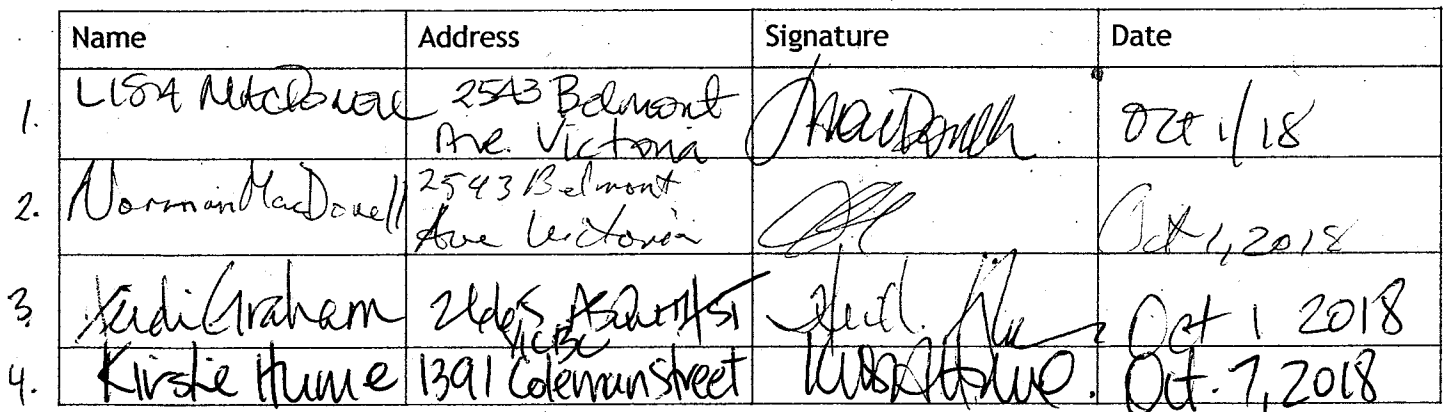 Name Address Signature Date
1. LISA MacDonell 2543 Belmont Ave. Victoria MacDonell Oct 1/18
2. Norman MacDonell 2543 Belmont Ave Victoria Oct 1, 2018
3. Heidi Graham 2665 Asquith St Vic BC Heidi Oct 1 2018
4. Kirstie Hume 1391 Coleman Street Oct. 7, 2018